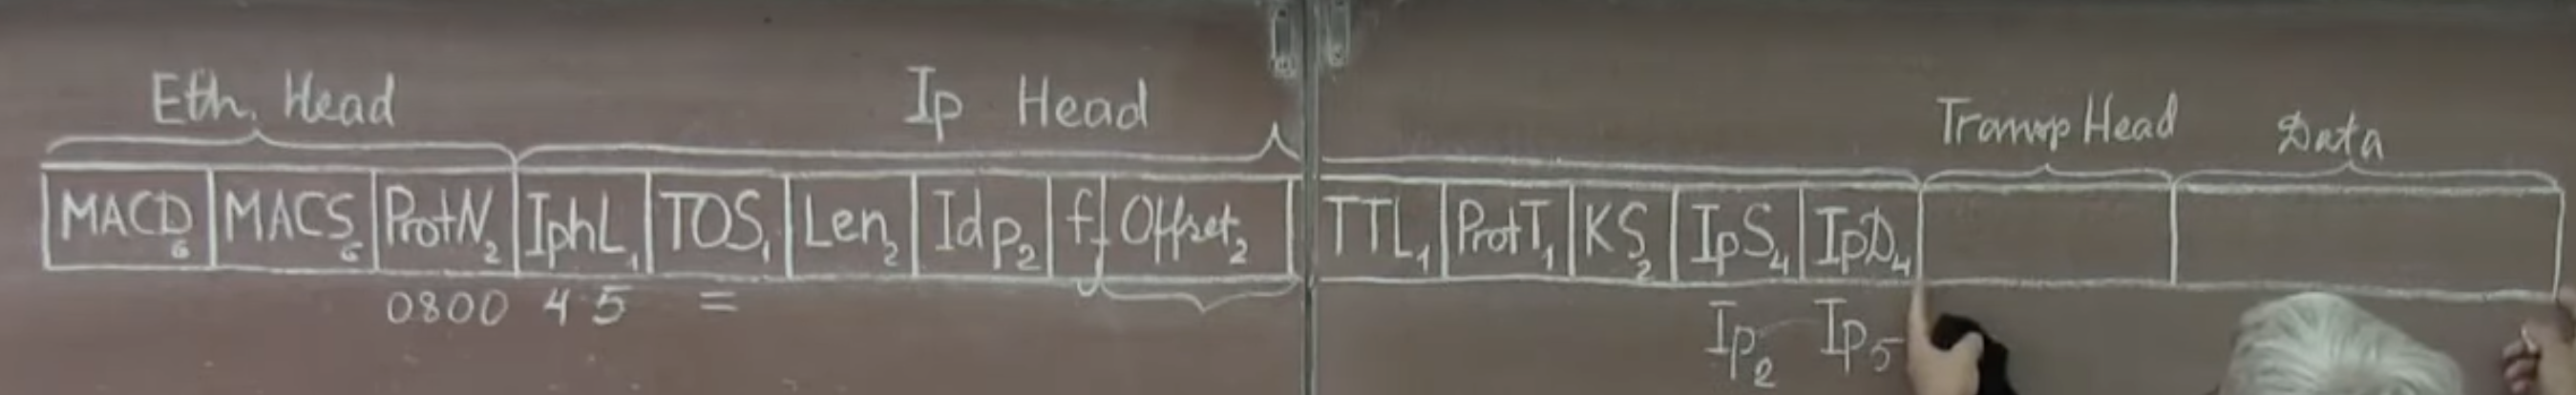 Eth. Head Ip Head Transp Head Data
MACD6 MACS6 ProtN2 IphL1 TOS1 Len2 Idp2 f Offset2 TTL1 ProtT1 KS2 IpS4 IpD4
0800 45 = Ip2 Ip5